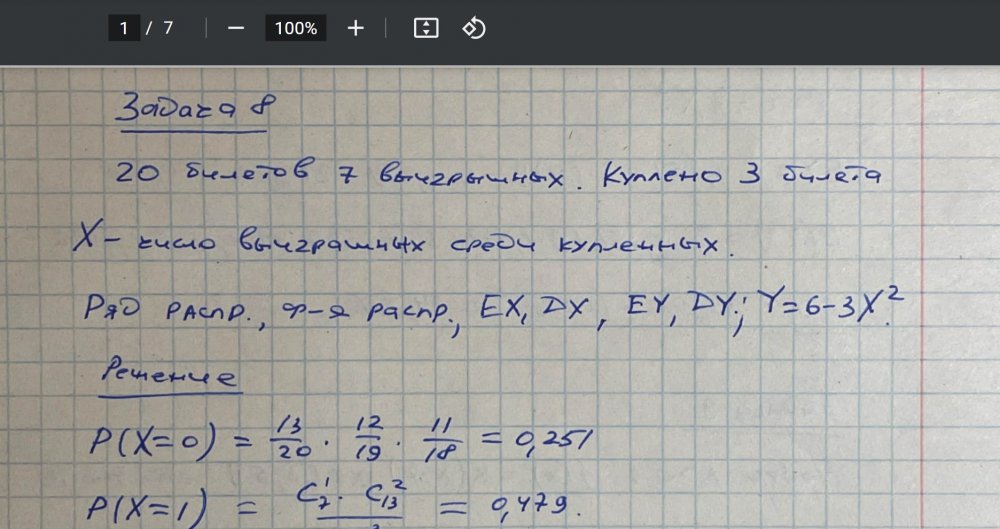 1 / 7 — 100% +
Задача 8
20 билетов 7 выигрышных. Куплено 3 билета
X – число выиграшных среди купленных.
Ряд распр., ф-я распр., EX, DX, EY, DY; Y=6-3X².
Решение
P(X=0) = 13/20 · 12/19 · 11/18 = 0,251
P(X=1) = C₇¹ · C₁₃² = 0,479.